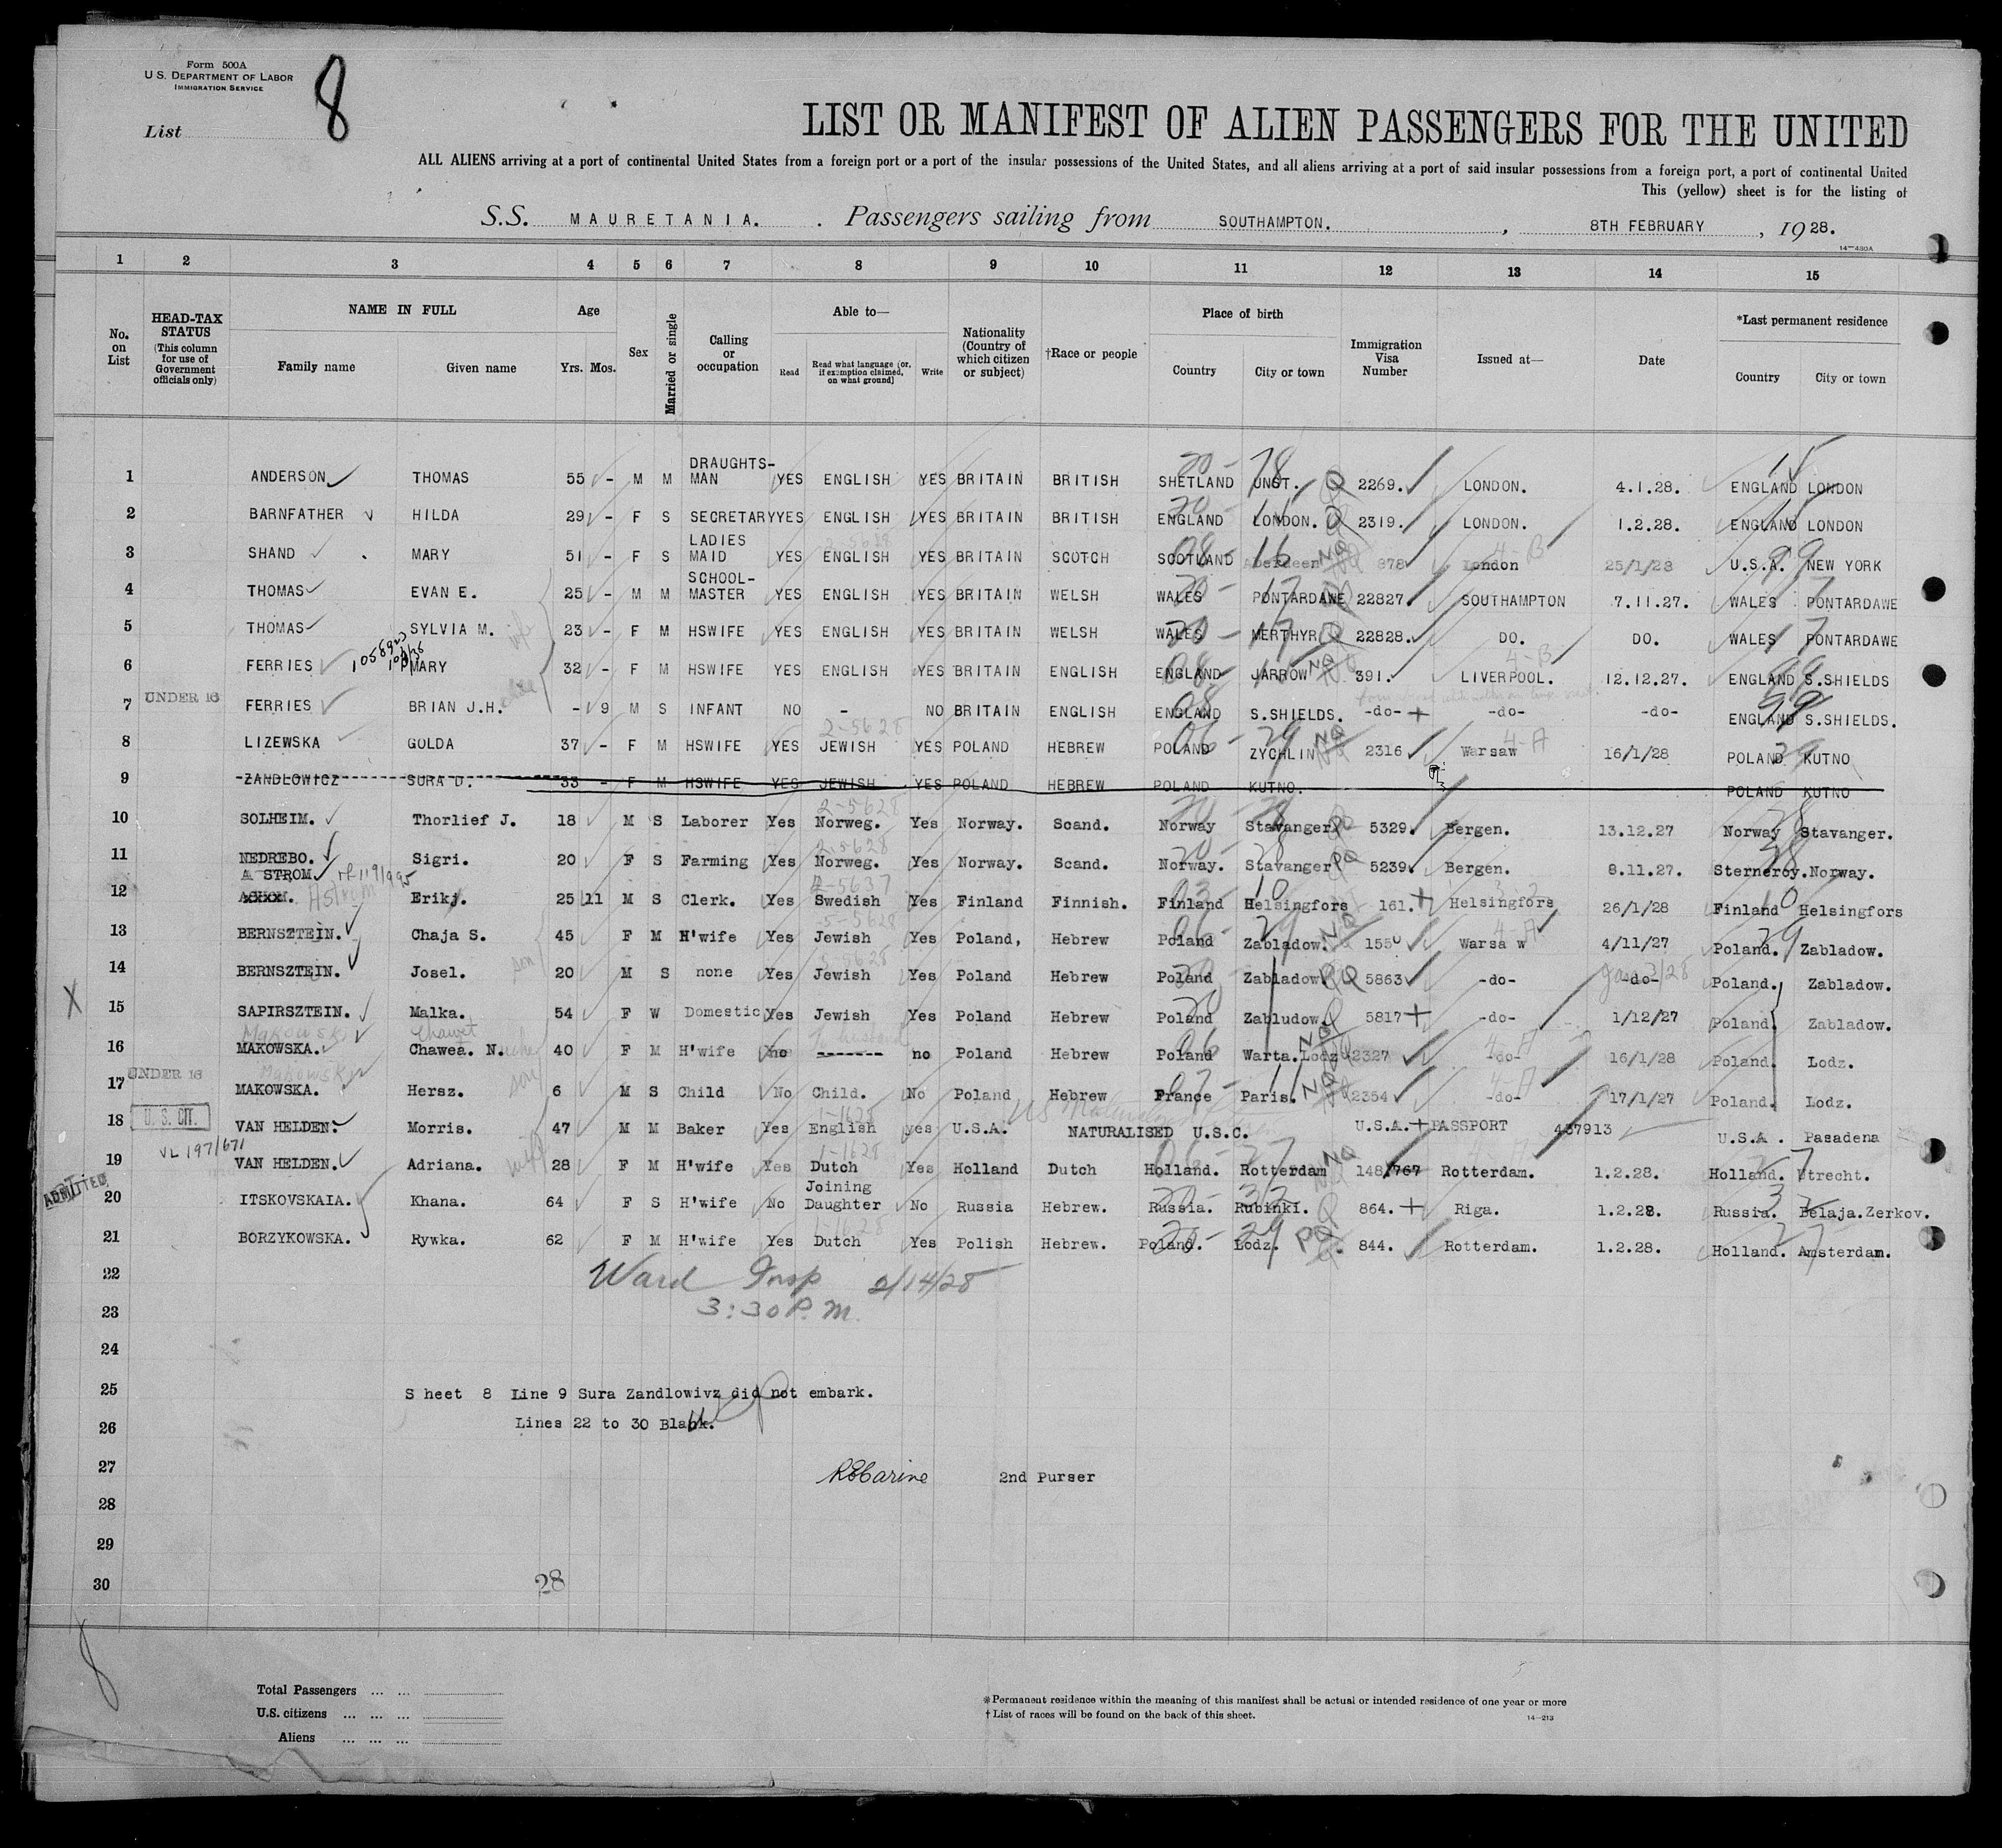 Form 500A
U. S. DEPARTMENT OF LABOR
IMMIGRATION SERVICE
8
List
LIST OR MANIFEST OF ALIEN PASSENGERS FOR THE UNITED
ALL ALIENS arriving at a port of continental United States from a foreign port or a port of the insular possessions of the United States, and all aliens arriving at a port of said insular possessions from a foreign port, a port of continental United
This (yellow) sheet is for the listing of
S.S. MAURETANIA. Passengers sailing from SOUTHAMPTON. , 8TH FEBRUARY , 1928.
14—430A
1 2 3 4 5 6 7 8 9 10 11 12 13 14 15
No. on List
HEAD-TAX STATUS (This column for use of Government officials only)
NAME IN FULL
Family name Given name
Age
Yrs. Mos.
Sex
Married or single
Calling or occupation
Able to—
Read Read what language [or, if exemption claimed, on what ground] Write
Nationality (Country of which citizen or subject)
†Race or people
Place of birth
Country City or town
Immigration Visa Number
Issued at—
Date
*Last permanent residence
Country City or town
1 ANDERSON THOMAS 55 - M M DRAUGHTS-MAN YES ENGLISH YES BRITAIN BRITISH SHETLAND UNST. 2269. LONDON. 4.1.28. ENGLAND LONDON
2 BARNFATHER HILDA 29 - F S SECRETARY YES ENGLISH YES BRITAIN BRITISH ENGLAND LONDON. 2319. LONDON. 1.2.28. ENGLAND LONDON
3 SHAND MARY 51 - F S LADIES MAID YES ENGLISH YES BRITAIN SCOTCH SCOTLAND Aberdeen 878 London 25/1/28 U.S.A. NEW YORK
4 THOMAS EVAN E. 25 - M M SCHOOL-MASTER YES ENGLISH YES BRITAIN WELSH WALES PONTARDAWE 22827 SOUTHAMPTON 7.11.27. WALES PONTARDAWE
5 THOMAS SYLVIA M. 23 - F M HSWIFE YES ENGLISH YES BRITAIN WELSH WALES MERTHYR 22828. DO. DO. WALES PONTARDAWE
6 FERRIES MARY 32 - F M HSWIFE YES ENGLISH YES BRITAIN ENGLISH ENGLAND JARROW 391. LIVERPOOL. 12.12.27. ENGLAND S.SHIELDS
7 UNDER 16 FERRIES BRIAN J.H. - 9 M S INFANT NO - NO BRITAIN ENGLISH ENGLAND S.SHIELDS. -do- -do- -do- ENGLAND S.SHIELDS.
8 LIZEWSKA GOLDA 37 - F M HSWIFE YES JEWISH YES POLAND HEBREW POLAND ZYCHLIN 2316 Warsaw 16/1/28 POLAND KUTNO
9 ZANDLOWICZ SURA D. 33 - F M HSWIFE YES JEWISH YES POLAND HEBREW POLAND KUTNO. POLAND KUTNO
10 SOLHEIM. Thorlief J. 18 M S Laborer Yes Norweg. Yes Norway. Scand. Norway Stavanger 5329. Bergen. 13.12.27 Norway Stavanger.
11 NEDREBO. Sigri. 20 F S Farming Yes Norweg. Yes Norway. Scand. Norway. Stavanger 5239. Bergen. 8.11.27. Sterneroy.Norway.
A STROM
12 Astrom Erikj. 25 11 M S Clerk. Yes Swedish Yes Finland Finnish. Finland Helsingfors 161. Helsingfors 26/1/28 Finland Helsingfors
13 BERNSZTEIN. Chaja S. 45 F M H'wife Yes Jewish Yes Poland, Hebrew Poland Zabladow. 1550 Warsa w 4/11/27 Poland. Zabladow.
14 BERNSZTEIN. Josel. 20 M S none Yes Jewish Yes Poland Hebrew Poland Zabladow 5863 -do- -do- Poland. Zabladow.
15 SAPIRSZTEIN. Malka. 54 F W Domestic Yes Jewish Yes Poland Hebrew Poland Zabludow. 5817 -do- 1/12/27 Poland. Zabladow.
16 MAKOWSKA. Chawea. N. 40 F M H'wife no ------- no Poland Hebrew Poland Warta.Lodz 2327 -do- 16/1/28 Poland. Lodz.
17 UNDER 16 MAKOWSKA. Hersz. 6 M S Child No Child. No Poland Hebrew France Paris. 2354 -do- 17/1/27 Poland. Lodz.
18 U. S. CIT. VAN HELDEN. Morris. 47 M M Baker Yes English yes U.S.A. NATURALISED U.S.C. U.S.A. PASSPORT 437913 U.S.A . Pasadena
19 VL 197/671 VAN HELDEN. Adriana. 28 F M H'wife Yes Dutch Yes Holland Dutch Holland. Rotterdam 148/767 Rotterdam. 1.2.28. Holland. Utrecht.
20 ADMITTED ITSKOVSKAIA. Khana. 64 F S H'wife No Joining Daughter No Russia Hebrew. Russia. Rubinki. 864. Riga. 1.2.28. Russia. Belaja.Zerkov.
21 BORZYKOWSKA. Rywka. 62 F M H'wife Yes Dutch Yes Polish Hebrew. Poland. Lodz. 844. Rotterdam. 1.2.28. Holland. Amsterdam.
22 Ward Insp 2/14/28
23 3:30 P.M.
24
25 S heet 8 Line 9 Sura Zandlowivz did not embark.
26 Lines 22 to 30 Blank.
27 2nd Purser
28
29
30 28
8
Total Passengers ... ...
U.S. citizens ... ... ...
Aliens ... ... ...
*Permanent residence within the meaning of this manifest shall be actual or intended residence of one year or more
† List of races will be found on the back of this sheet.
14—213